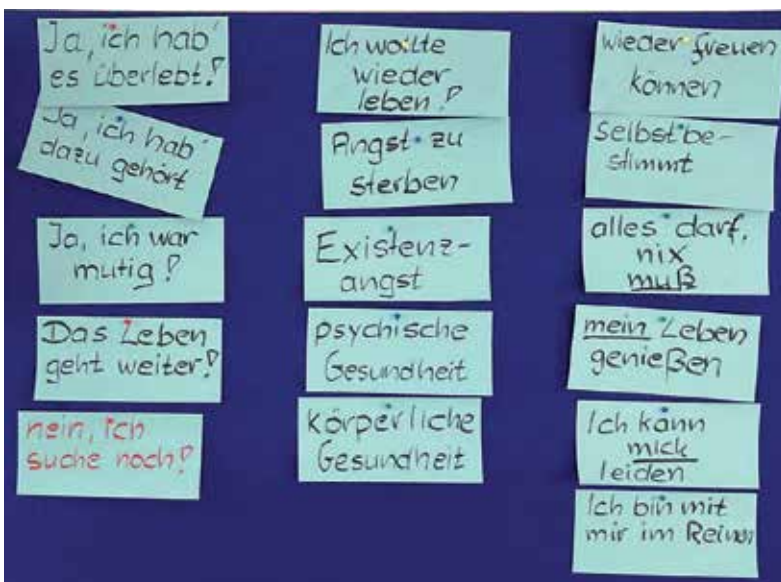 Ja, ich hab'
es überlebt!
Ja, ich hab'
dazu gehört
Ja, ich war
mutig!
Das Leben
geht weiter!
nein, ich
suche noch!
Ich wollte
wieder
leben!
Angst zu
sterben
Existenz-
angst
psychische
Gesundheit
körperliche
Gesundheit
wieder freuen
können
Selbstbe-
stimmt
alles darf,
nix
muß
mein Leben
genießen
Ich kann
mich
leiden
Ich bin mit
mir im Reinen